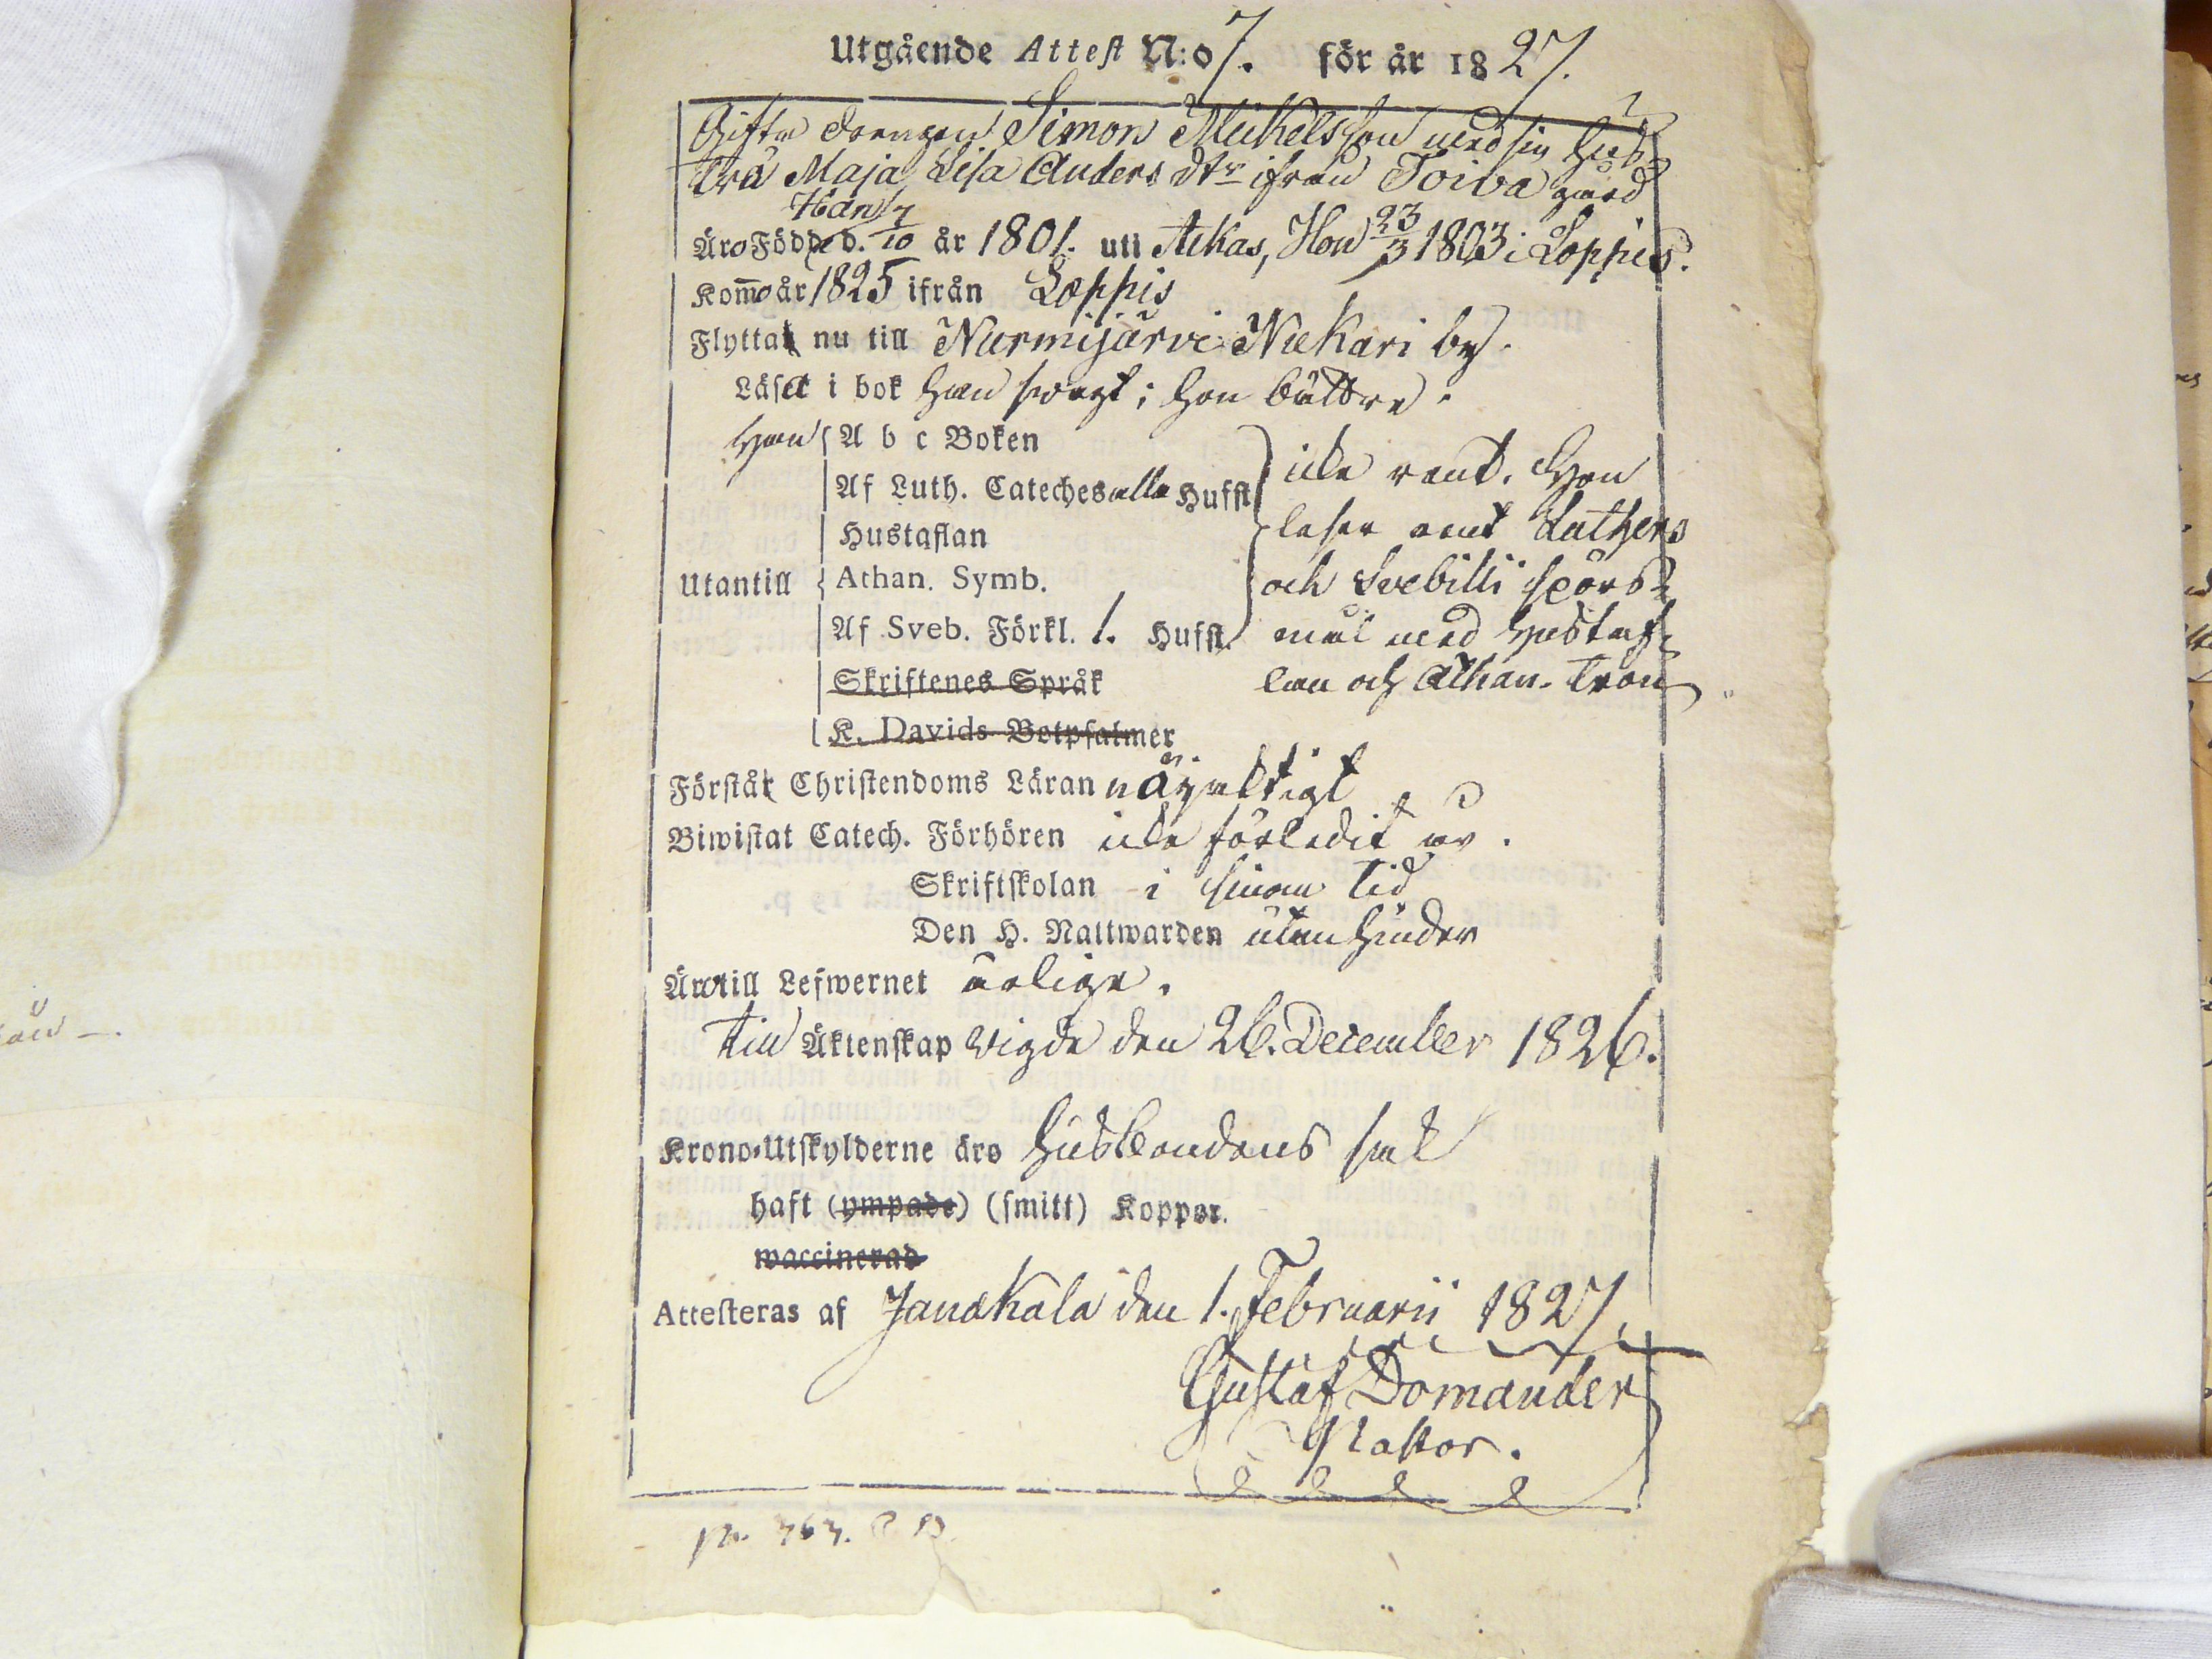 Utgående Attest N:o 7. för år 1827.
Gifta drengen Simon Michelsson med sin hus-
tru Maja Lisa Anders dtr ifrån Toiva gård
Han
Äro Födde d. 7/10 år 1801. uti Ackas, Hon 23/3 1803 i Loppis.
Kom̅o år 1825 ifrån Loppis
Flytta nu till Nurmijärvi Nuckari by.
Läser i bok han svagt; hon bättre.
Han A b c Boken
Af Luth. Cateches alla Hufst
icke rent. Hon
Hustaflan
läser rent Luthers
Utantill Athan. Symb.
och Svebilii spörs-
Af Sveb. Förkl. 1. Hufst.
mål med Hustaf-
Skriftenes Språk
lan och Athan. tron
K. Davids Botpsalmer
Förstå Christendoms Läran någorledigt
Biwistat Catech. Förhören icke förledit år.
Skriftskolan i sinom tid
Den H. Nattwarden utan hinder
Äro till Lefwernet ärlige.
till Äktenskap vigde den 26. December 1826.
Krono-Utskylderne äro husbondens sak
haft (ympade) (smitt) Koppor.
waccinerad
Attesteras af Janakala den 1. Februarii 1827.
Gustaf Domander
Pastor.
p. 767.